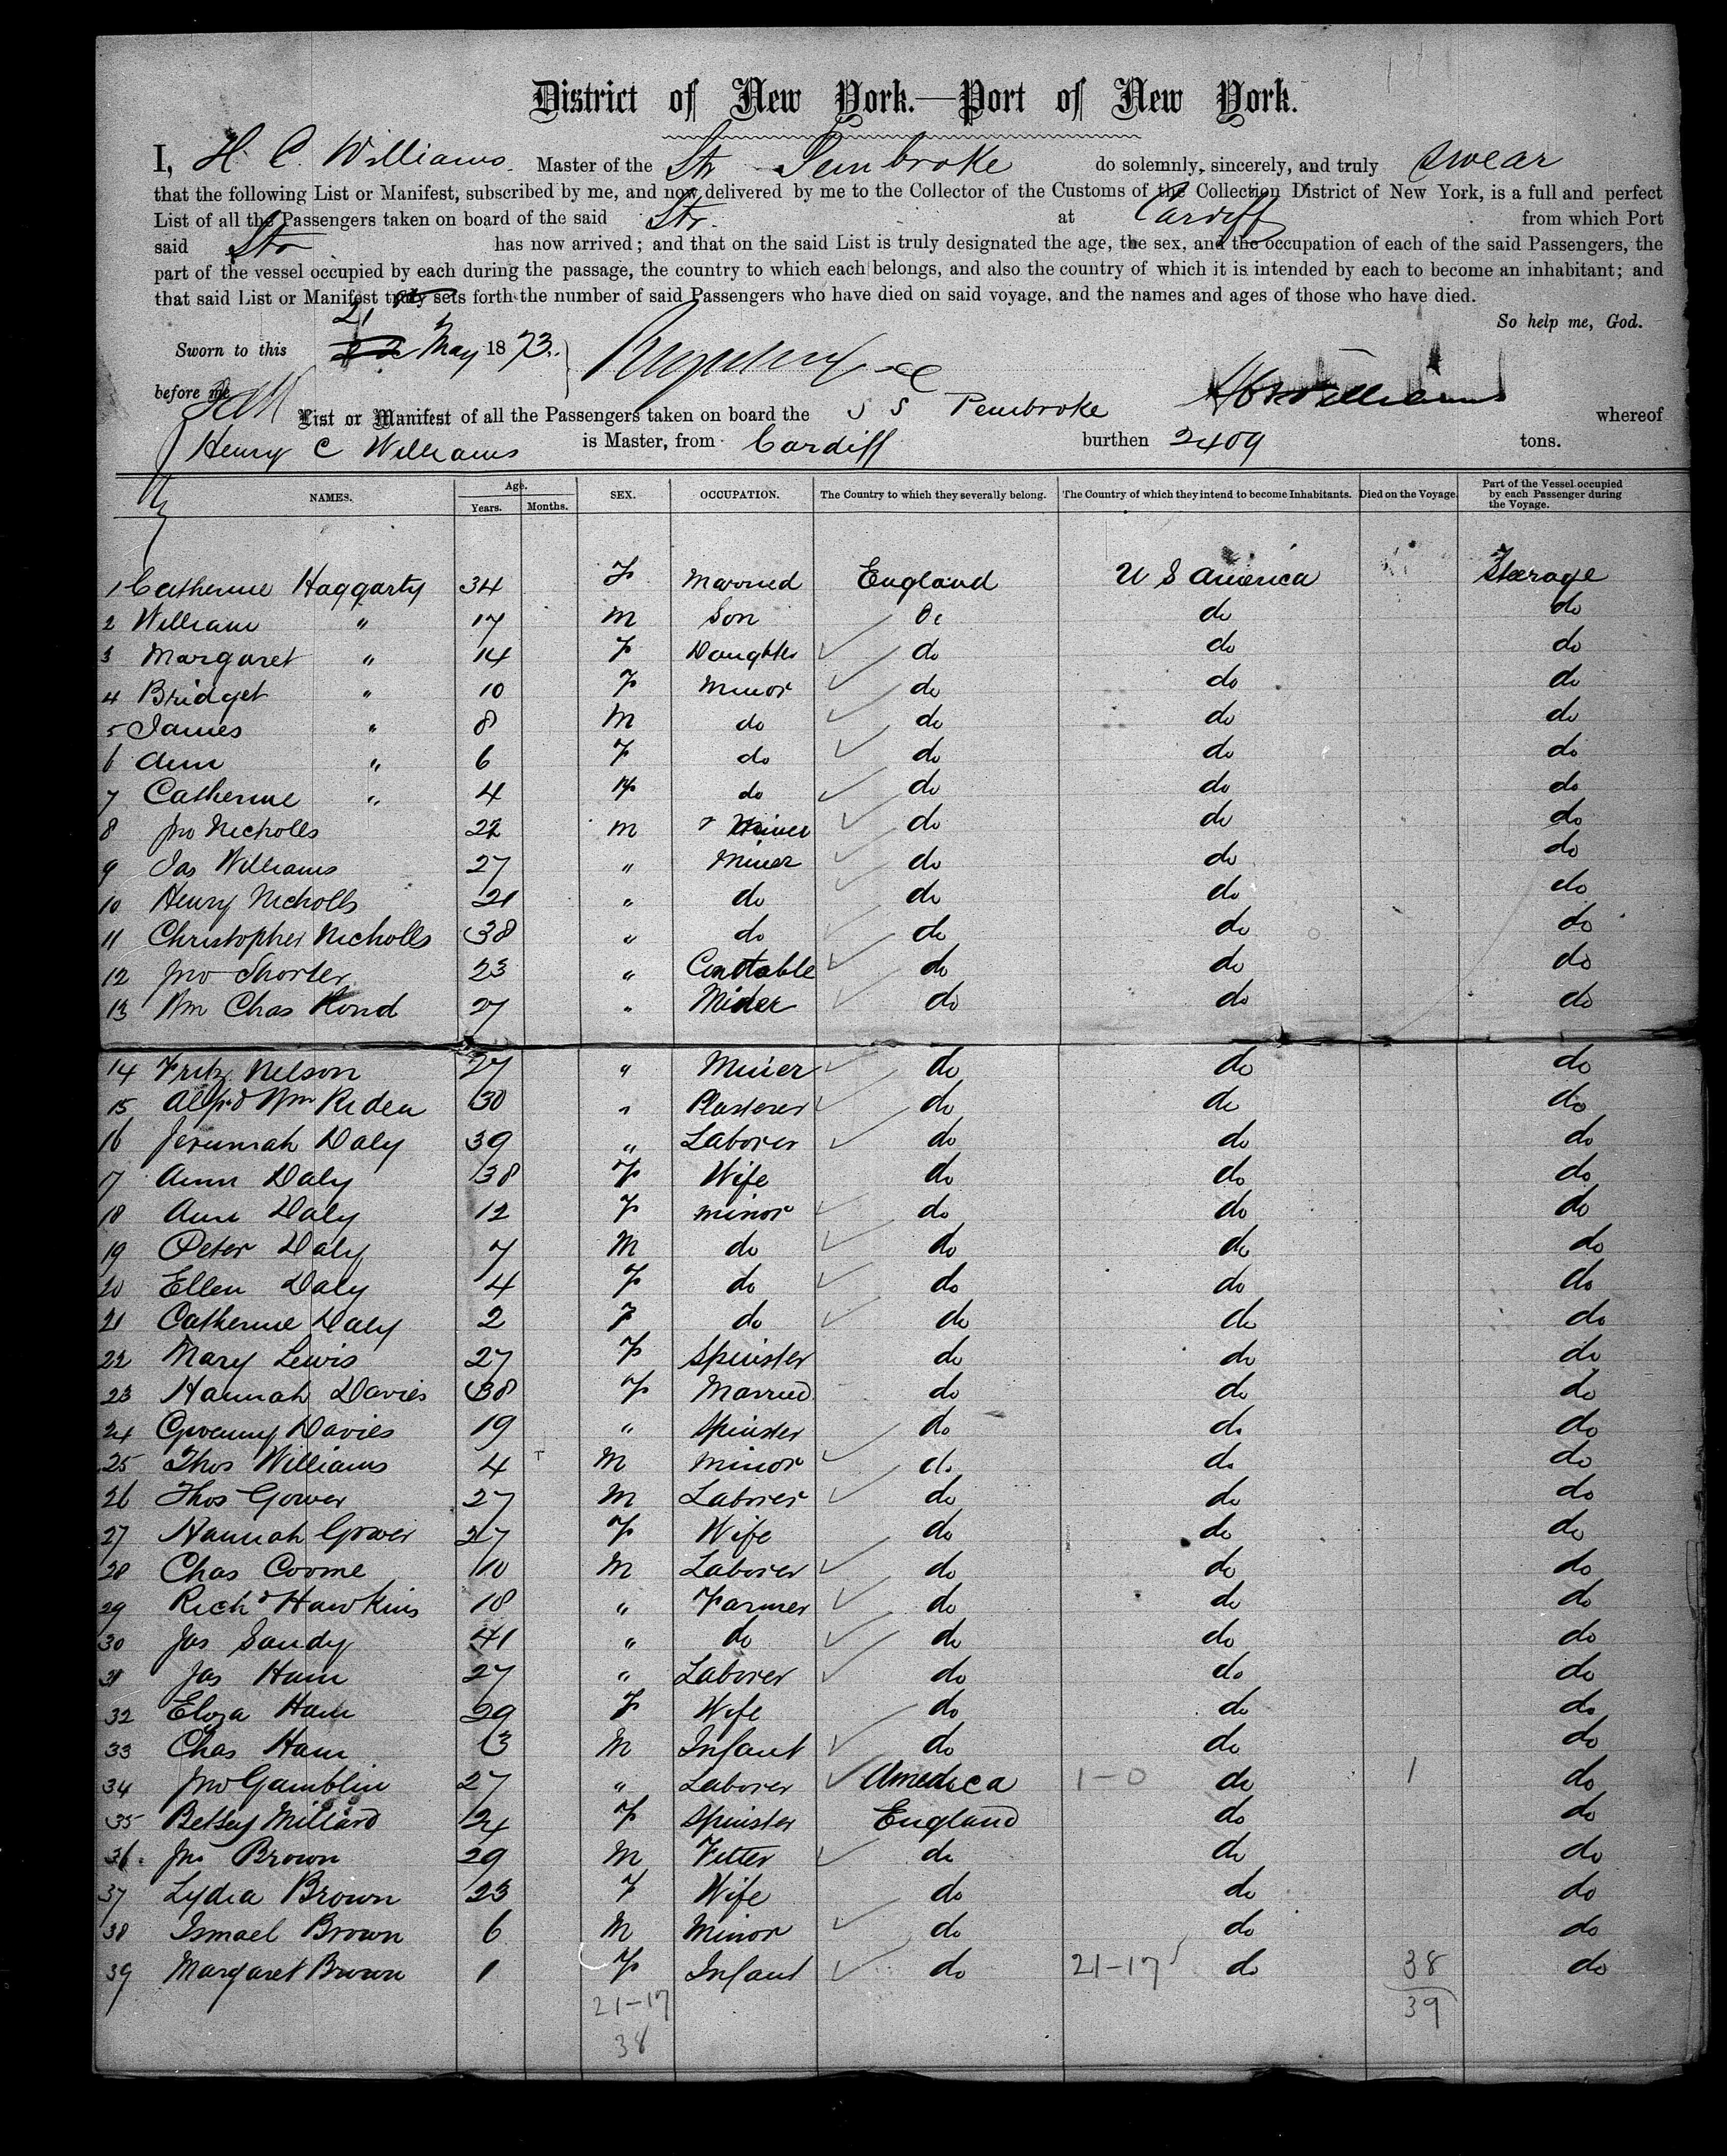 District of New York.—Port of New York.
I, H. C. Williams Master of the Str Pembroke do solemnly, sincerely, and truly swear
that the following List or Manifest, subscribed by me, and now delivered by me to the Collector of the Customs of the Collection District of New York, is a full and perfect
List of all the Passengers taken on board of the said Str. at Cardiff from which Port
said Str has now arrived; and that on the said List is truly designated the age, the sex, and the occupation of each of the said Passengers, the
part of the vessel occupied by each during the passage, the country to which each belongs, and also the country of which it is intended by each to become an inhabitant; and
that said List or Manifest truly sets forth the number of said Passengers who have died on said voyage, and the names and ages of those who have died.
So help me, God.
Sworn to this 21 May 1873.
before me
H C Williams
List or Manifest of all the Passengers taken on board the S S Pembroke whereof
Henry C Williams is Master, from Cardiff burthen 2409 tons.
NAMES. Age. Years. Months. SEX. OCCUPATION. The Country to which they severally belong. The Country of which they intend to become Inhabitants. Died on the Voyage. Part of the Vessel occupied by each Passenger during the Voyage.
1 Catherine Haggarty 34 F Married England U S America Steerage
2 William " 17 M Son do do do
3 Margaret " 14 F Daughter do do do
4 Bridget " 10 F Minor do do do
5 James " 8 M do do do do
6 Ann " 6 F do do do do
7 Catherine " 4 F do do do do
8 Jno Nicholls 22 M Miner do do do
9 Jas Williams 27 " Miner do do do
10 Henry Nicholls 21 " do do do do
11 Christopher Nicholls 38 " do do do do
12 Jno Shorter 23 " do do do
13 Wm Chas 27 " do do do
14 Fritz Nelson 27 " Miner do do do
15 Alfrd Wm Ridea 30 " Plasterer do do do
16 Jerumah Daly 39 " Laborer do do do
17 Ann Daly 38 F Wife do do do
18 Ann Daly 12 F minor do do do
19 Peter Daly 7 M do do do do
20 Ellen Daly 4 F do do do do
21 Catherine Daly 2 F do do do do
22 Mary Lewis 27 F Spinster do do do
23 Hannah Davies 38 F Married do do do
24 Gwenny Davies 19 " Spinster do do do
25 Thos Williams 4 M Minor do do do
26 Thos Gower 27 M Laborer do do do
27 Hannah Gower 27 F Wife do do do
28 Chas Coome 10 M Laborer do do do
29 Richd Hawkins 18 " Farmer do do do
30 Jas Sandy 41 " do do do do
31 Jas Ham 27 " Laborer do do do
32 Eliza Ham 29 F Wife do do do
33 Chas Ham 3 M Infant do do do
34 Jno Gamblin 27 " Laborer America 1-0 do 1 do
35 Betsey Millard 24 F Spinster England do do
36 Jno Brown 29 M Fitter do do do
37 Lydia Brown 23 F Wife do do do
38 Ismael Brown 6 M Minor do do do
39 Margaret Brown 1 F Infant do 21-17 do 38 do
21-17 39
38